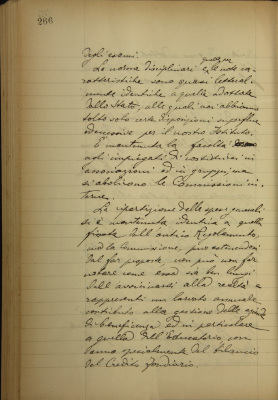 266
degli esami.
Le norme disciplinari e le note ca-
ratteristiche sono quasi letteral-
mente identiche a quelle adottate
dallo Stato, alle quali noi abbiamo
tolto solo certe disposizioni superflue
per il nostro Istituto.
È mantenuta la facoltà
agli impiegati di costituirsi in
associazioni ed in gruppi ma
si aboliscono le Commissioni in-
terne.
La ripartizione delle spese annuali
si è mantenuta identica a quella
fissata dall'antico Regolamento,
ma la Commissione, pur astenendosi
dal far proposte, non può non far
notare come essa sia ben lungi
dall'avvicinarsi alla realtà e
rappresenti un larvato annuale
contributo alla gestione delle opere
di beneficenza ed in particolare
a quella dell'Educatorio, con
danno specialmente del bilancio
del Credito fondiario.